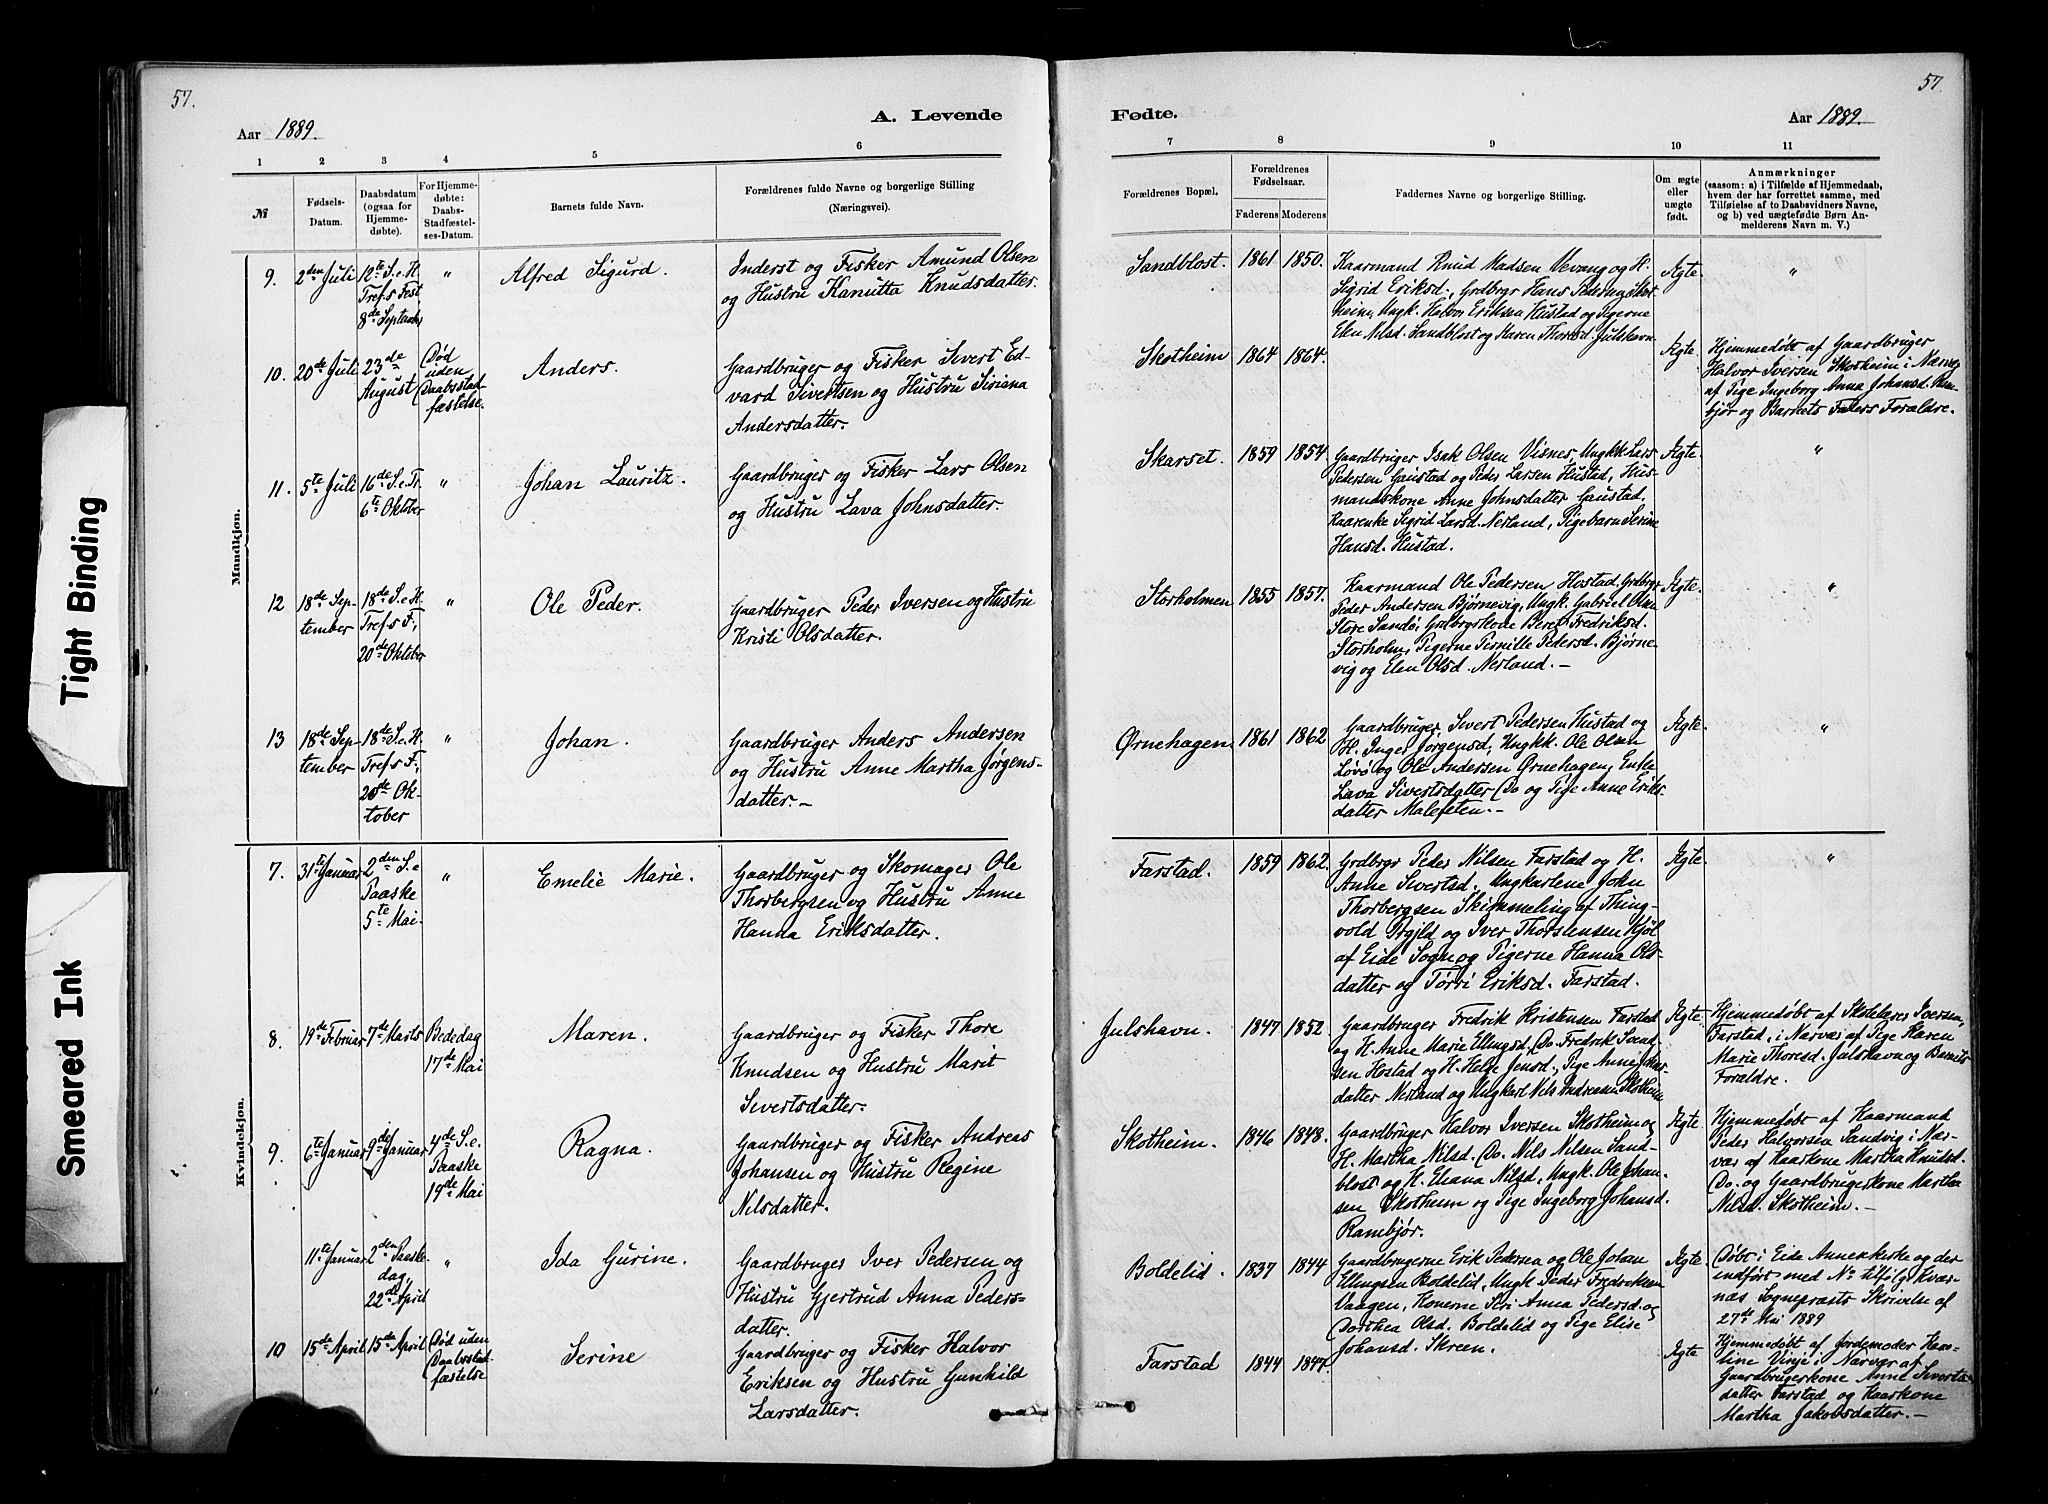 57.
A. Levende
Aar 1889.
1 2 3 4 5 6
№
Fødsels-
Datum.
Daabsdatum
(ogsaa for
Hjemme-
døbte).
For Hjemme-
døbte:
Daabs-
Stadfæstel-
ses-Datum.
Barnets fulde Navn.
Forældrenes fulde Navne og borgerlige Stilling
(Næringsvei).
Mandkjøn.
9. 2den Juli
12te S. e. H.
Tref s Fest
8de September
"
Alfred Sigurd.
Inderst og Fisker Amund Olsen
og Hustru Kanutta Knudsdatter.
10. 20de Juli
23de
August
Død
uden
Daabsstad
fæstelse.
Anders.
Gaardbruger og Fisker Sivert Ed-
vard Sivertsen og Hustru Siriana
Andersdatter.
11. 5te Juli
16de S. e. Tr.
6te Oktober
"
Johan Lauritz.
Gaardbruger og Fisker Lars Olsen
og Hustru Lava Johnsdatter.
12 18de Sep-
tember
18de S. e. H.
Tref s F.,
20de Oktober
"
Ole Peder.
Gaardbruger Peder Iversen og Hustru
Kristi Olsdatter.
13 18de Sep-
tember
18de S. e. H.
Tref s F.,
20de Ok-
tober
"
Johan.
Gaardbruger Anders Andersen
og Hustru Anne Martha Jørgens-
datter.-
Kvindekjøn.
7. 31te Januar
2den S. e
Paaske
5te Mai.
"
Emelie Marie.
Gaardbruger og Skomager Ole
Thorbergsen og Hustru Anne
Hanna Eriksdatter.
8. 19de Februar
7de Marts
Bededag
17de Mai
Maren.
Gaardbruger og Fisker Thore
Knudsen og Hustru Marit
Sivertsdatter.
9. 6te Januar
9de Januar
4de S. e.
Paaske
19de Mai
Ragna.
Gaardbruger og Fisker Andreas
Johansen og Hustru Regine
Nilsdatter.
11te Januar
2den Paaske-
dag,
22de April
"
Ida Gurine.
Gaardbruger Iver Pedersen og
Hustru Gjertrud Anna Peders-
datter.
10 15de April
15de April
Død uden
Daabsstad-
fæstelse
Serine
Gaardbruger og Fisker Halvor
Eriksen og Hustru Gunhild
Larsdatter.
57
Fødte.
Aar 1889.
7 8 9 10 11
Forældrenes Bopæl.
Forældrenes
Fødselsaar.
Faderens Moderens
Faddernes Navne og borgerlige Stilling.
Om ægte
eller
uægte
født.
Anmærkninger
(saasom: a) i Tilfælde af Hjemmedaab,
hvem der har forrettet samme, med
Tilføielse af to Daabsvidners Navne,
og b) ved uægtefødte Børn An-
melderens Navn m. V.)
Sandblost. 1861 1850.
Kaarmand Knud Madsen Vevang og H.
Sigrid Eriksd., Grdbrgr Hans Pedersen Skot
heim, Ungk. Halvor Eriksen Hustad og Pigerne
Elen Nilsd. Sandblost og Maren Thoresd. Julshavn.
Ægte.
"
Skotheim 1864 1864.
Ægte.
Hjemmedøbt af Gaardbruger
Halvor Iversen Skotheim i Nærvær
af Pige Ingeborg Anna Johansd. Ram-
bjør og Barnets Faders Forældre.
Skarset. 1859 1854.
Gaardbruger Isak Olsen Visnes, Ungkk. Lars
Pedersen Gaustad og Peder Larsen Hustad, Hus-
mandskone Anne Johnsdatter Gaustad,
Kaarenke Sigrid Larsd. Nerland, Pigebarn Serine
Hansd. Hustad.
Ægte.
"
Storholmen 1855 1857.
Kaarmand Ole Pedersen Hostad, Grdbrgr
Peder Andersen Bjørnevig, Ungk. Gabriel Olsen
Store Sandø, Grdbrgrskone Beret Fredriksd.
Storholm, Pigerne Pernille Pedersd. Bjørne-
vig og Elen Olsd. Nerland.-
Ægte.
"
Ørnehagen 1861 1862
Gaardbruger Sivert Pedersen Hustad og
H. Inger Jørgensd, Ungkk. Ole Olsen
Løvø og Ole Andersen Ørnehagen, Enke
Lava Sivertsdatter Do og Pige Anne Eriks-
datter Malefeten.-
Ægte.
"
Farstad. 1859 1862.
Grdbrgr Peder Nilsen Farstad og H.
Anne Sivertsd. Ungkarlene John
Thorbergsen Skimmeling af Thing-
vold Prgjld og Iver Thorstensen Kjøl
af Eide Sogn og Pigerne Hanna Ols-
datter og Torri Eriksd. Farstad.
Ægte
"
Julshavn. 1847 1852.
Gaardbruger Fredrik Kristensen Farstad
og H. Anne Marie Ellingsd, Do. Fredrik Svend-
sen Hostad og H. Helge Jensd., Pige Anne Johns-
datter Nerland og Ungkarl Nils Andreasen Skotheim
Ægte.
Hjemmedøbt af Skolelærer Iversen,
Farstad, i Nærvær af Pige Karen
Marie Thoresd. Julshavn og Barnets
Forældre.
Skotheim. 1846 1848.
Gaardbruger Halvor Iversen Skotheim og
H. Martha Nilsd. Do. Nils Nilsen Sand-
blost og H. Eliana Nilsd. Ungk. Ole Johan-
sen Skotheim og Pige Ingeborg Johansd.
Rambjør.
Ægte
Hjemmedøbt af Kaarmand
Peder Halvorsen Sandvig i Nær-
vær af Kaarkone Martha Knudsd.
Do. og Gaardbrugerkone Martha
Nilsd. Skotheim.-
Boldelid. 1837 1844
Gaardbrugerne Erik Pedersen og Ole Johan
Ellingsen Boldelid, Ungk. Peder Fredriksen
Vaagen, Konerne Seri Anna Pedersd. og
Dorthea Olsd. Boldelid og Pige Elise
Johansd. Skreen.
Ægte.
Døbt i Eide Annexkirke og der
indført med No tilfølg Kvær-
næs Sogneprests Skrivelse af
27de Mai 1889
Farstad 1844 1847.
Ægte
Hjemmedøbt af Jordemoder Karo-
line Vinje i Nærvær af
Gaardbrugerkone Anne Siverts-
datter Farstad og Kaarkone
Martha Jakobsdatter.-
Tight Binding
Smeared Ink